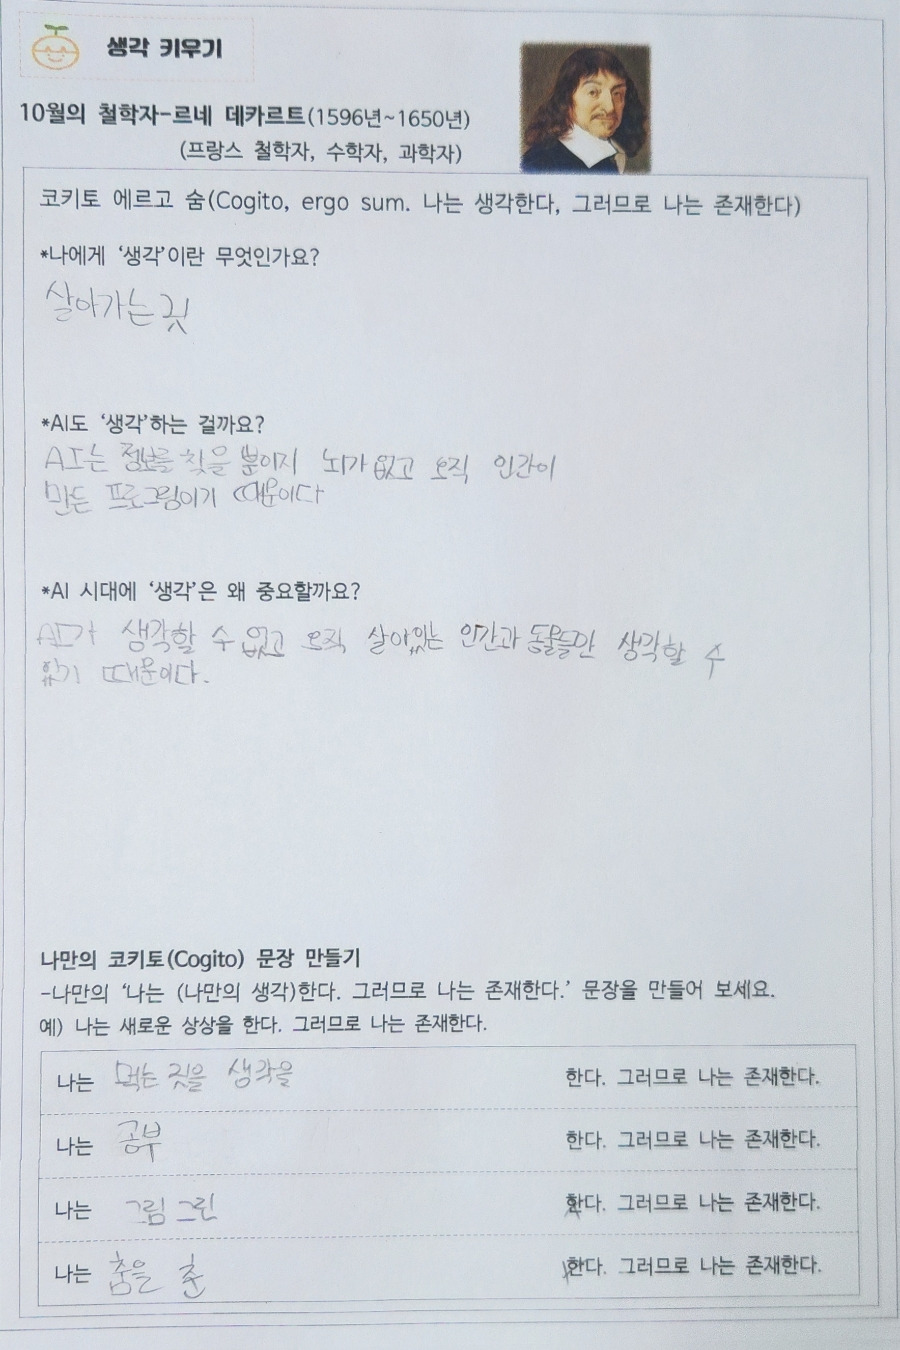 생각 키우기
10월의 철학자-르네 데카르트(1596년~1650년)
(프랑스 철학자, 수학자, 과학자)
코키토 에르고 숨(Cogito, ergo sum. 나는 생각한다, 그러므로 나는 존재한다)
*나에게 ‘생각’이란 무엇인가요?
살아가는 것
*AI도 ‘생각’하는 걸까요?
AI는 정보를 찾을 뿐이지 뇌가 없고 오직 인간이
만든 프로그림이기 때문이다
*AI 시대에 ‘생각’은 왜 중요할까요?
AI가 생각할 수 없고 오직 살아있는 인간과 동물들만 생각할 수
있기 때문이다.
나만의 코키토(Cogito) 문장 만들기
-나만의 ‘나는 (나만의 생각)한다. 그러므로 나는 존재한다.’ 문장을 만들어 보세요.
예) 나는 새로운 상상을 한다. 그러므로 나는 존재한다.
나는 먹는 것을 생각을 한다. 그러므로 나는 존재한다.
나는 공부 한다. 그러므로 나는 존재한다.
나는 그림 그린 다. 그러므로 나는 존재한다.
나는 춤을 춘 다. 그러므로 나는 존재한다.